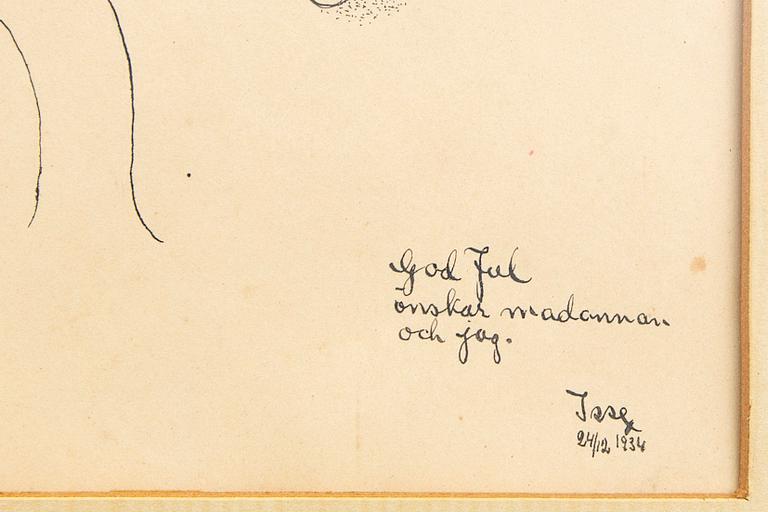 God Jul
önskar madonnan
och jag.
Isse
24/12 1934